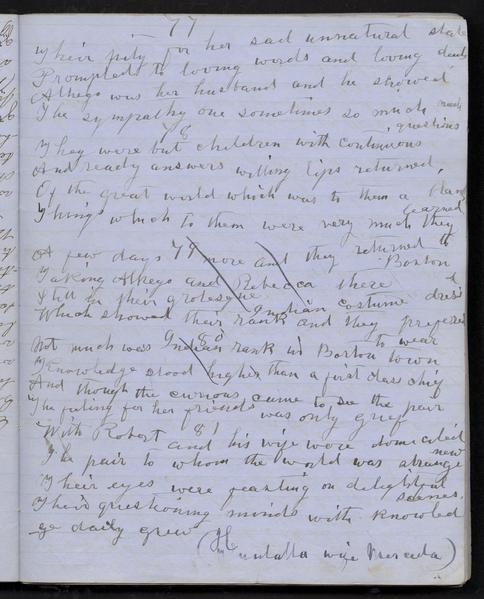 77
Their pity for her sad unnatural state
Prompted to loving words and loving deeds
Alkego was her husband and he showed
The sympathy one sometimes so much needs
78
They were but children with continuous questions
And ready answers willing lips returned,
Of the great world which was to them a blank
Things which to them were very much they learned
79
A few days more and they returned to Boston
Taking Alkego and Rebecca there
Still in their grotesque Indian costume dressd
Which showed their rank and they prefered to wear
80
Not much was Indian rank in Boston town
Knowledge stood higher than a first class chief
And though the curious came to see the pair
The feeling for her friends was only grief
81
With Robert and his wife were domiciled
The pair to whom the world was strange new
Their eyes were feasting on delightful scenes.
Their questioning minds with knowled
ge daily grew
(
wife
)